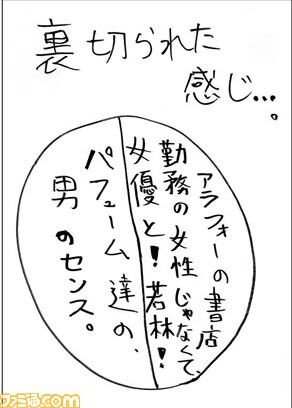 裏切られた
感じ…。
アラフォーの書店
勤務の女性じゃなくて、
女優と!若林!
パフューム達の、
男のセンス。
ファミ通.com